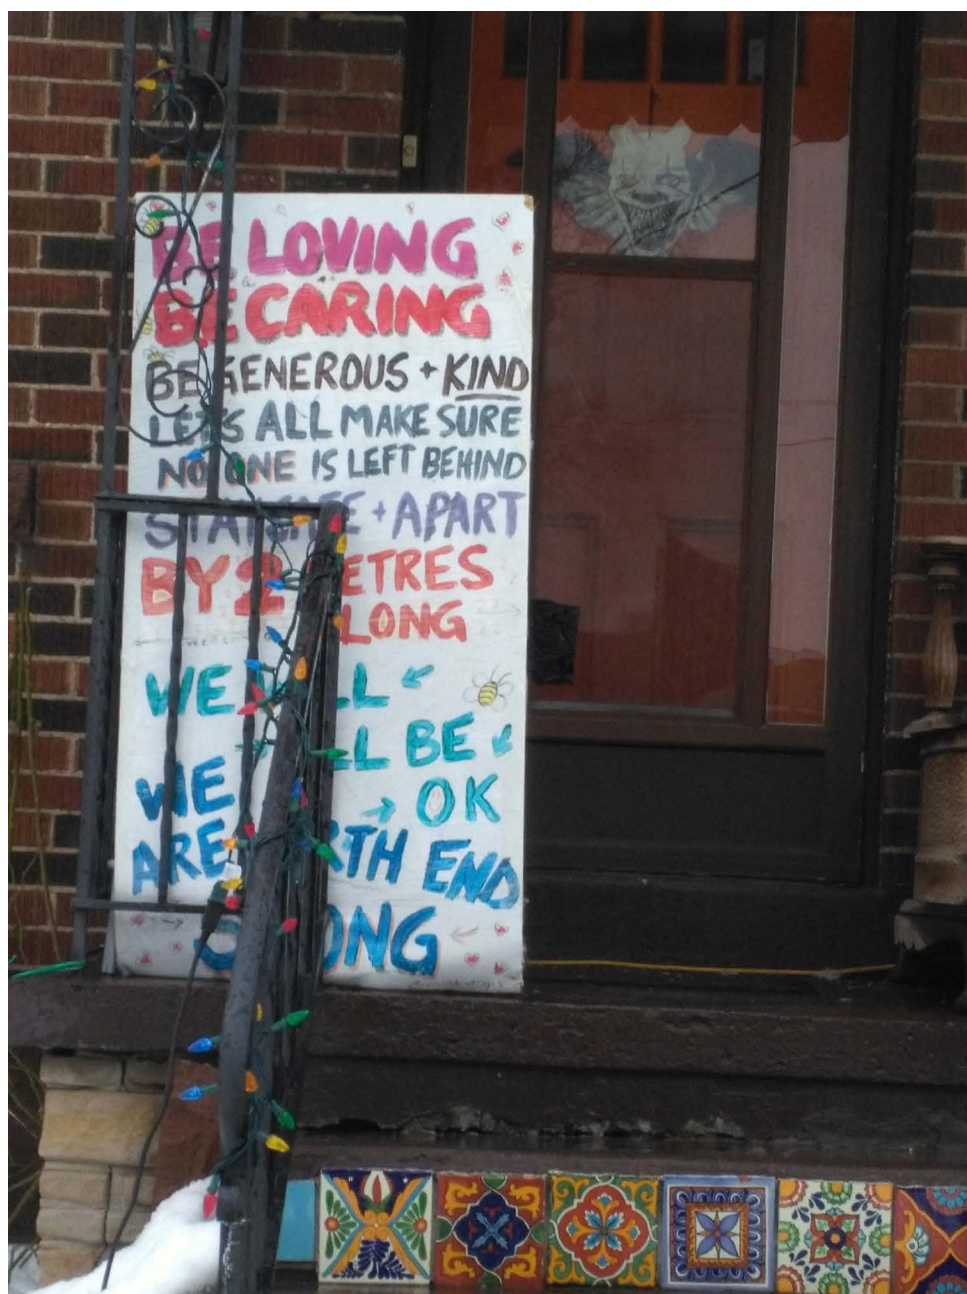 BE LOVING
BE CARING
BE GENEROUS + KIND
LET'S ALL MAKE SURE
NO ONE IS LEFT BEHIND
STAY SAFE + APART
BY 2 METRES
LONG
WE WILL
ALL BE
OK
WE
ARE NORTH END
STRONG